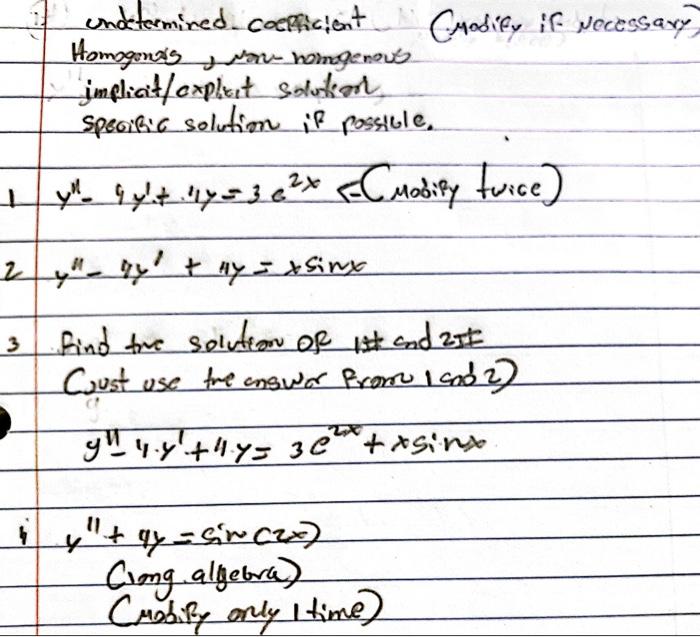 undetermined coefficient (Modify if necessary)
Homogenous, non-homogenous
implicit/explicit solution
specific solution if possible.
1 y''- 4y'+ 4y = 3e^2x <-(Modify twice)
2 y''- 4y' + 4y = xsinx
3 find the solution of 1st and 2st
(Just use the answer from 1 and 2)
y''- 4y' + 4y = 3e^2x + xsinx
4 y'' + 4y = sin(2x)
(long algebra)
(Modify only 1 time)